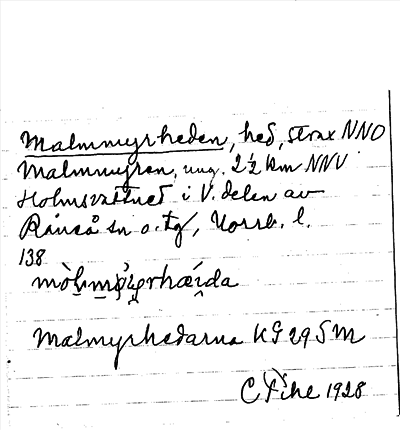 Malmmyrheden, hed, strax NNO
Malmmyren, ung. 2½ km NNV
Holmsvattnet i V. delen av
Råneå sn o. tg, Norrb. l.
138
Malmyrhedarna KG 29 SM
C Fihe 1928